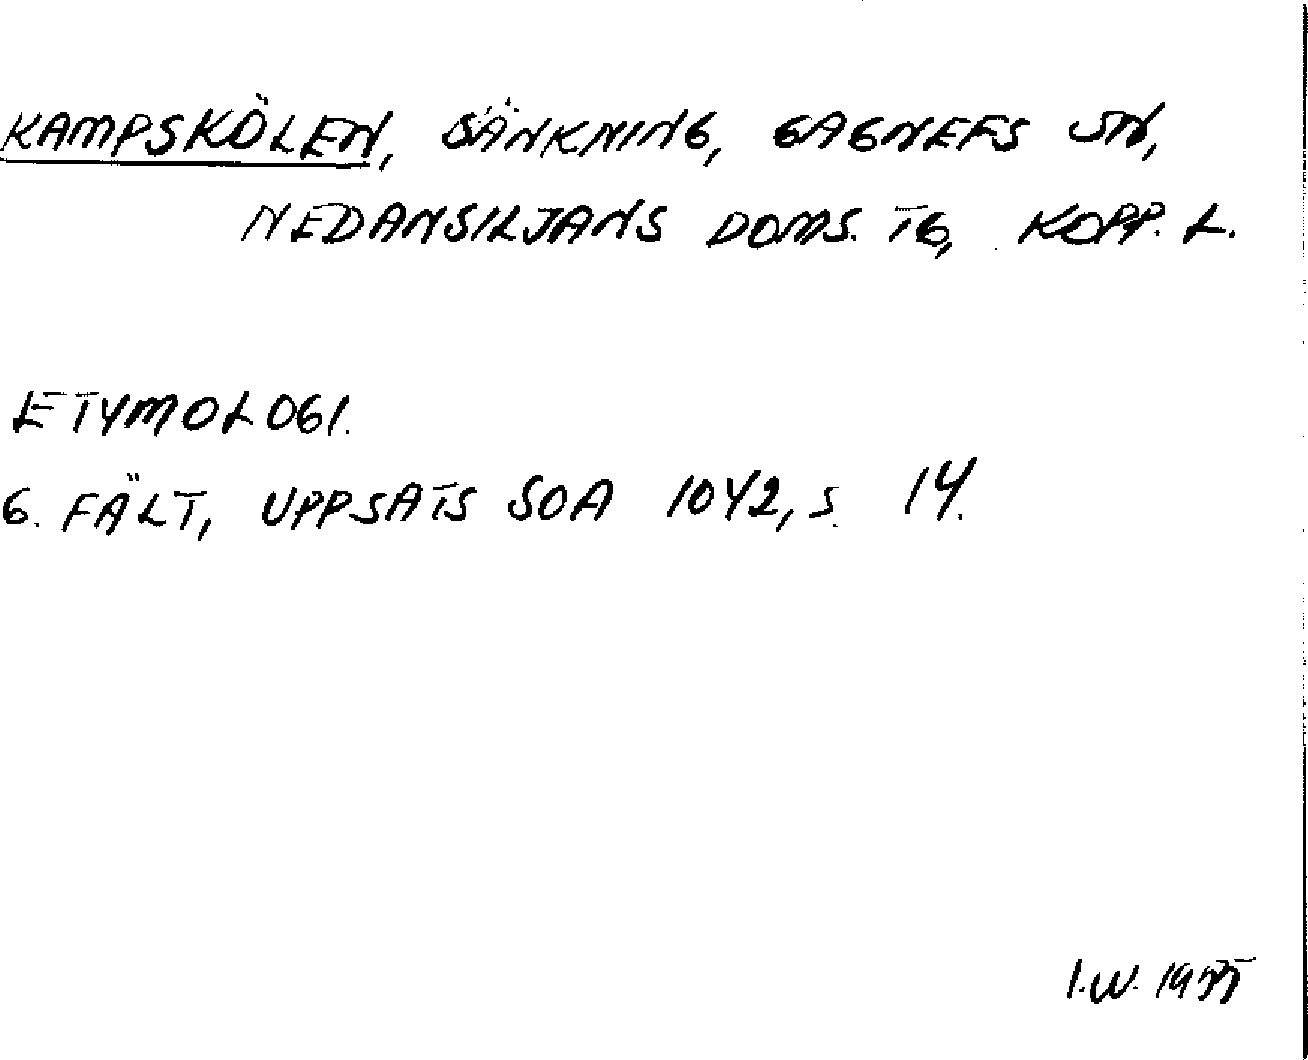 KAMPSKÖLEN, SÄNKNING, GAGNEFS SN,
NEDANSILJANS DOMS. TG, KOPP. L.
ETYMOLOGI.
G. FÄLT, UPPSATS SOA 1042, S. 14.
I.W. 1977